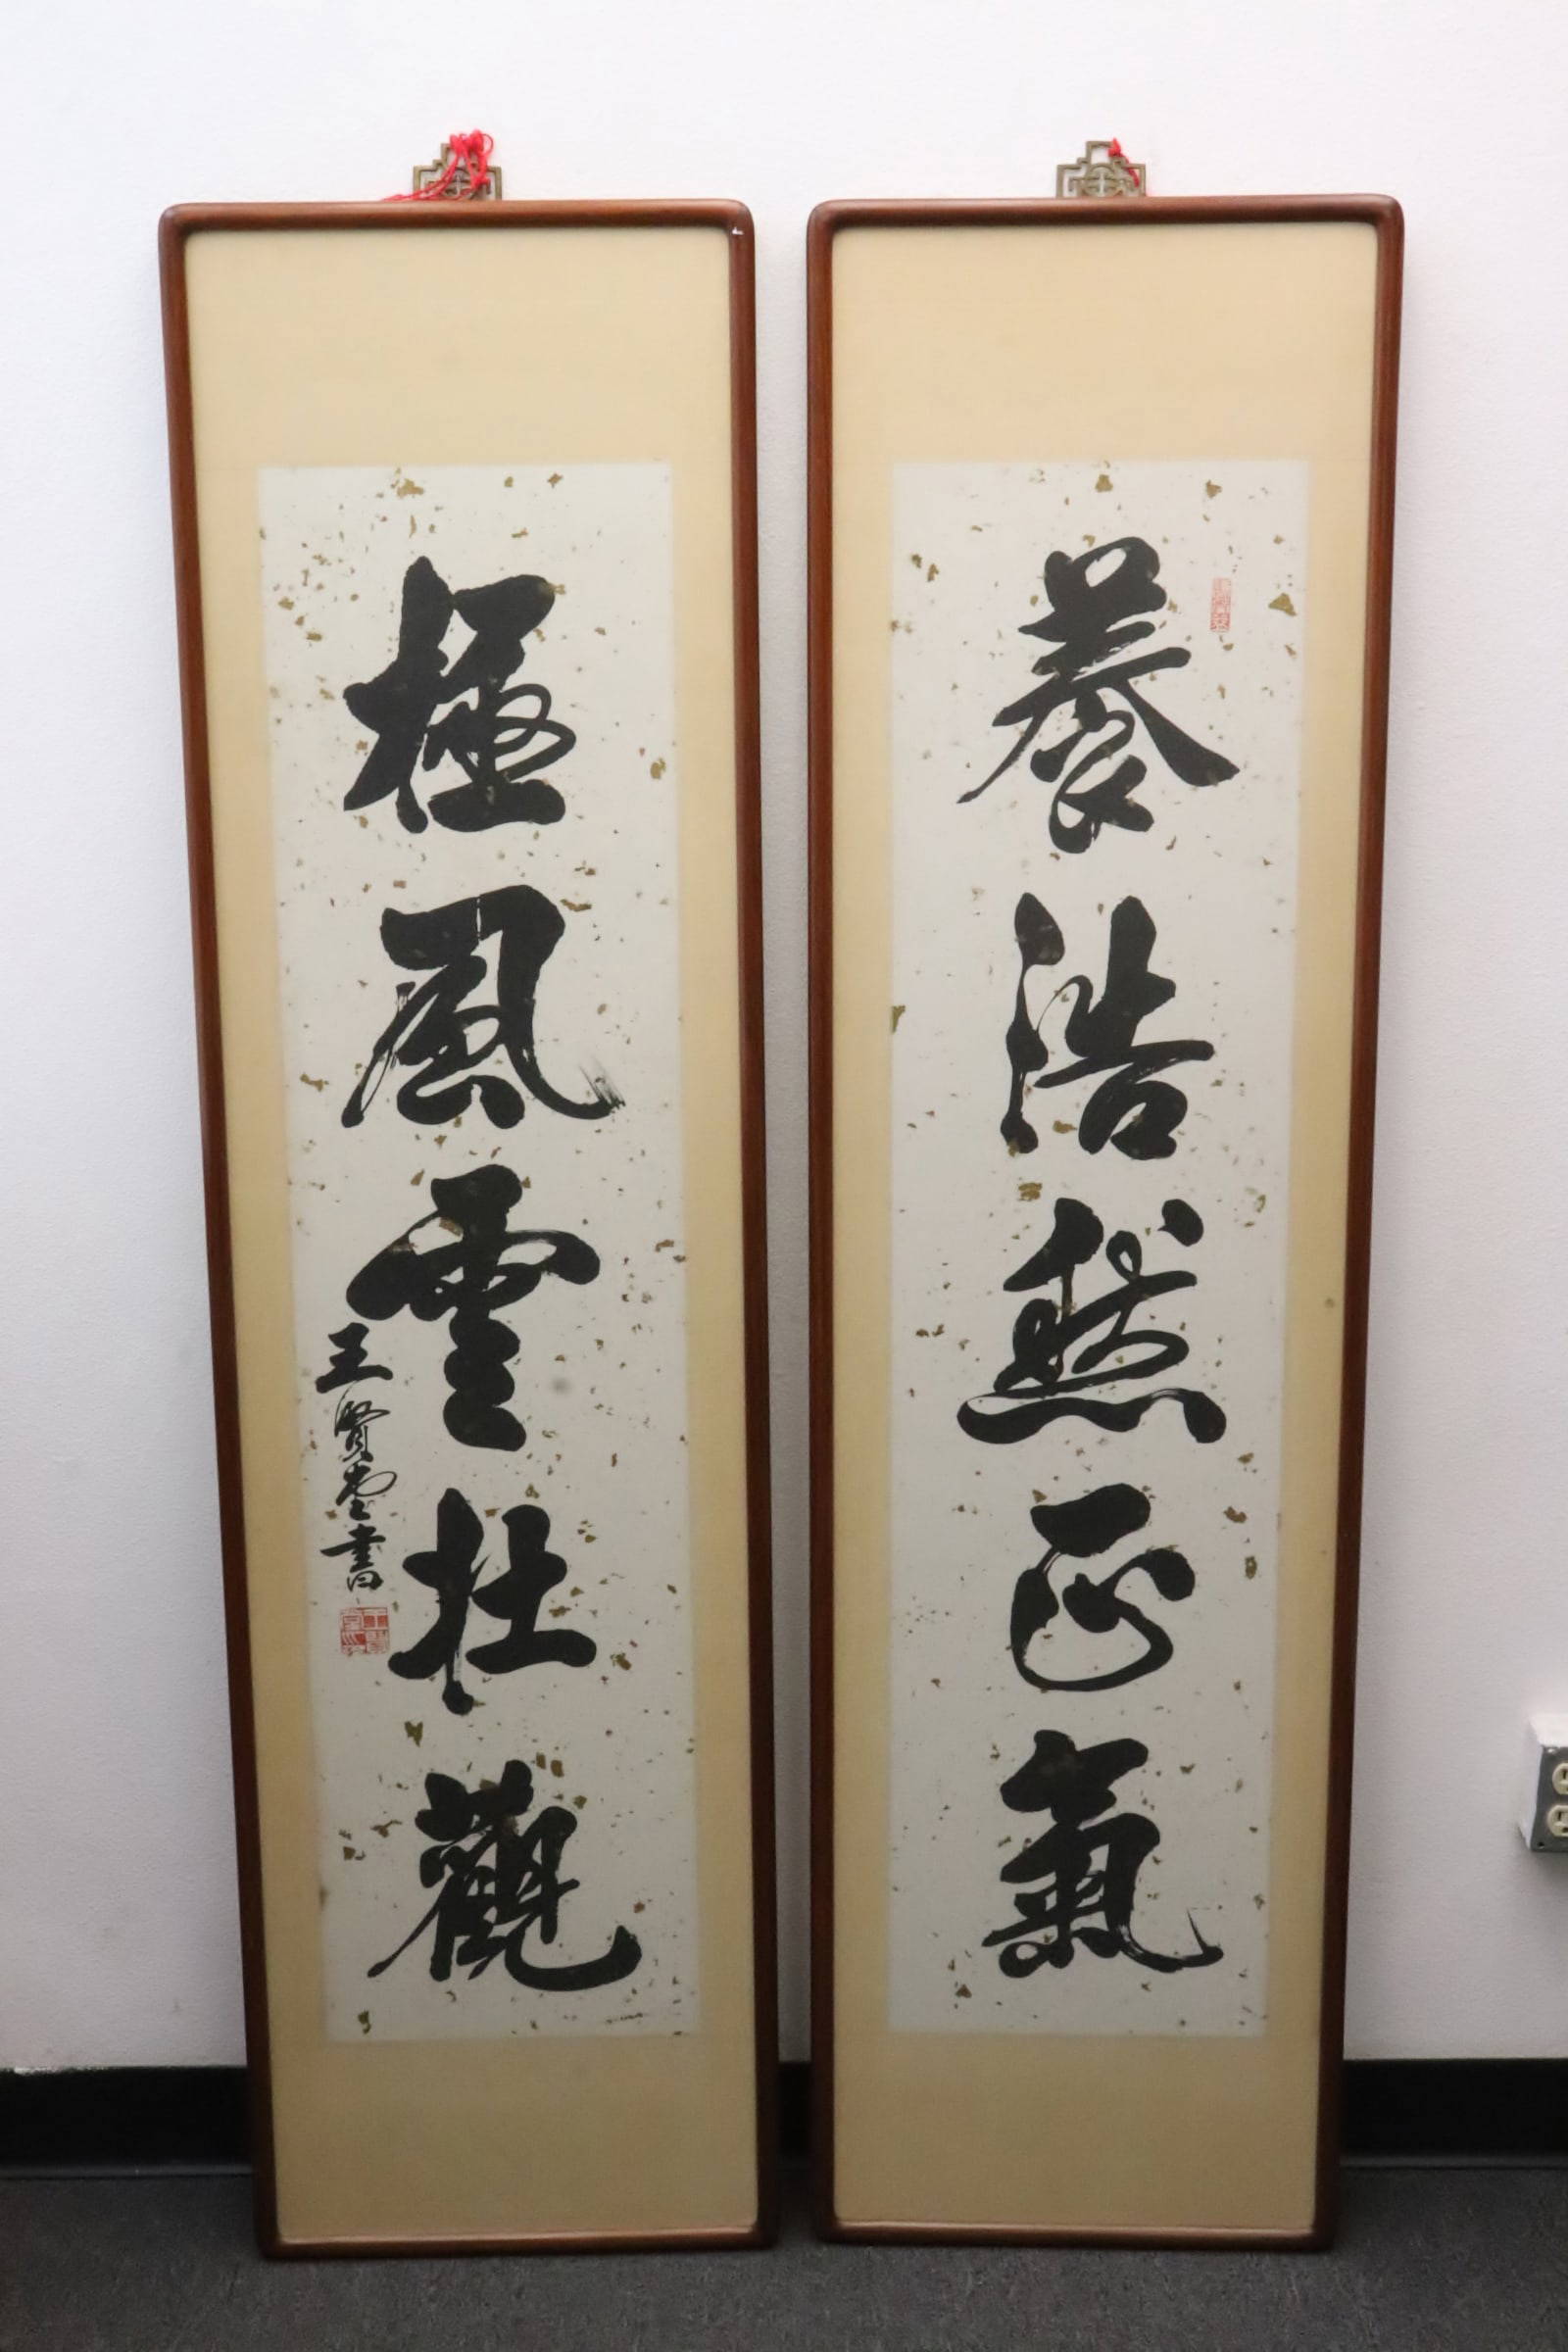 養浩然正氣
極風雲壯觀
王賢堂書